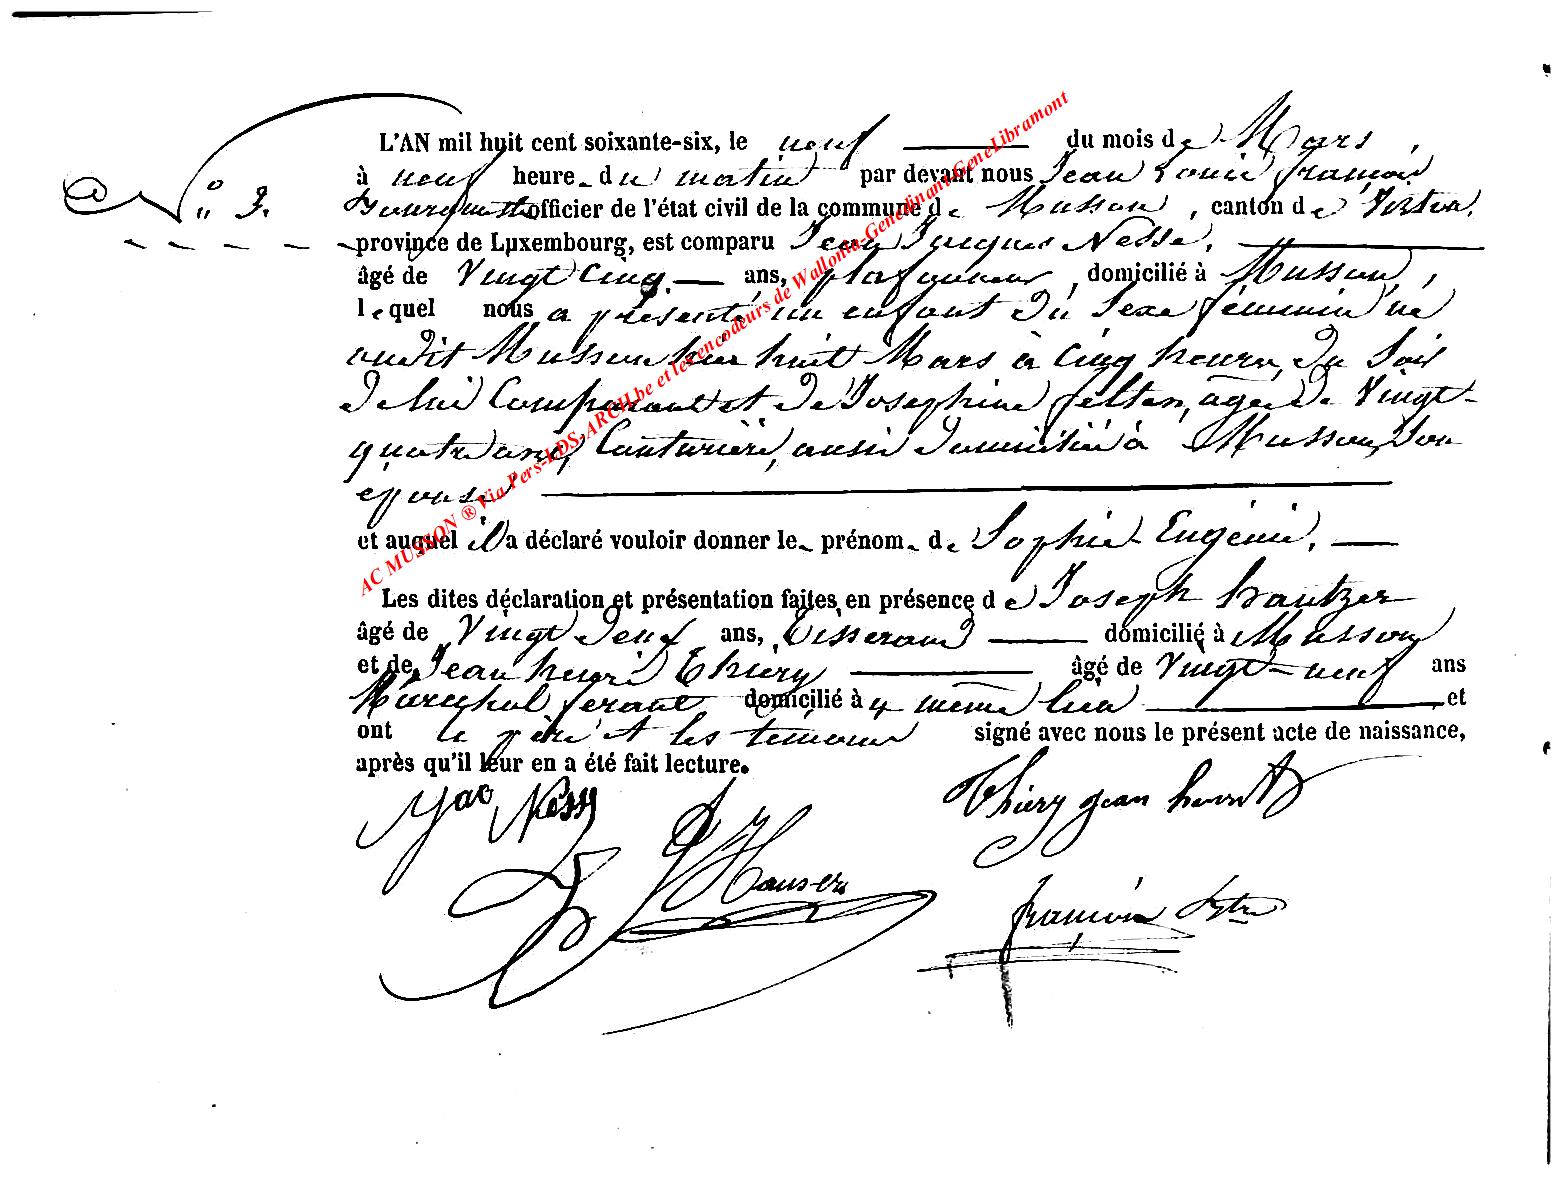 N° 3.
L'AN mil huit cent soixante-six, le neuf du mois de Mars,
à neuf heure du matin par devant nous Jean Louis françois
Bourgmestre officier de l'état civil de la commune de Musson, canton de Virton,
province de Luxembourg, est comparu Jean Jacques Nesse,
âgé de Vingt Cinq ans, plafonneur, domicilié à Musson,
lequel nous a présenté un enfant du Sexe féminin né
audit Musson hier huit Mars à Cinq heures du Soir
de lui Comparant et de Josephine felten, âgée de Vingt-
quatre ans, Couturière, aussi domiciliée à Musson, Son
épouse
et auquel il a déclaré vouloir donner le prénom de Sophie Eugénie.
Les dites déclaration et présentation faites en présence de Joseph
âgé de Vingt neuf ans, Tisserand domicilié à Musson
et de Jean henri Thiery âgé de Vingt-neuf ans
Maréchal ferant domicilié à même lieu et
ont le père et les temoins signé avec nous le présent acte de naissance,
après qu'il leur en a été fait lecture.
Jac Ness
Thiery jean henri
françois
AC MUSSON ® Via Pers-LDS-ARCH.be et les encodeurs de Wallonia-Genedinant-GeneLibramont